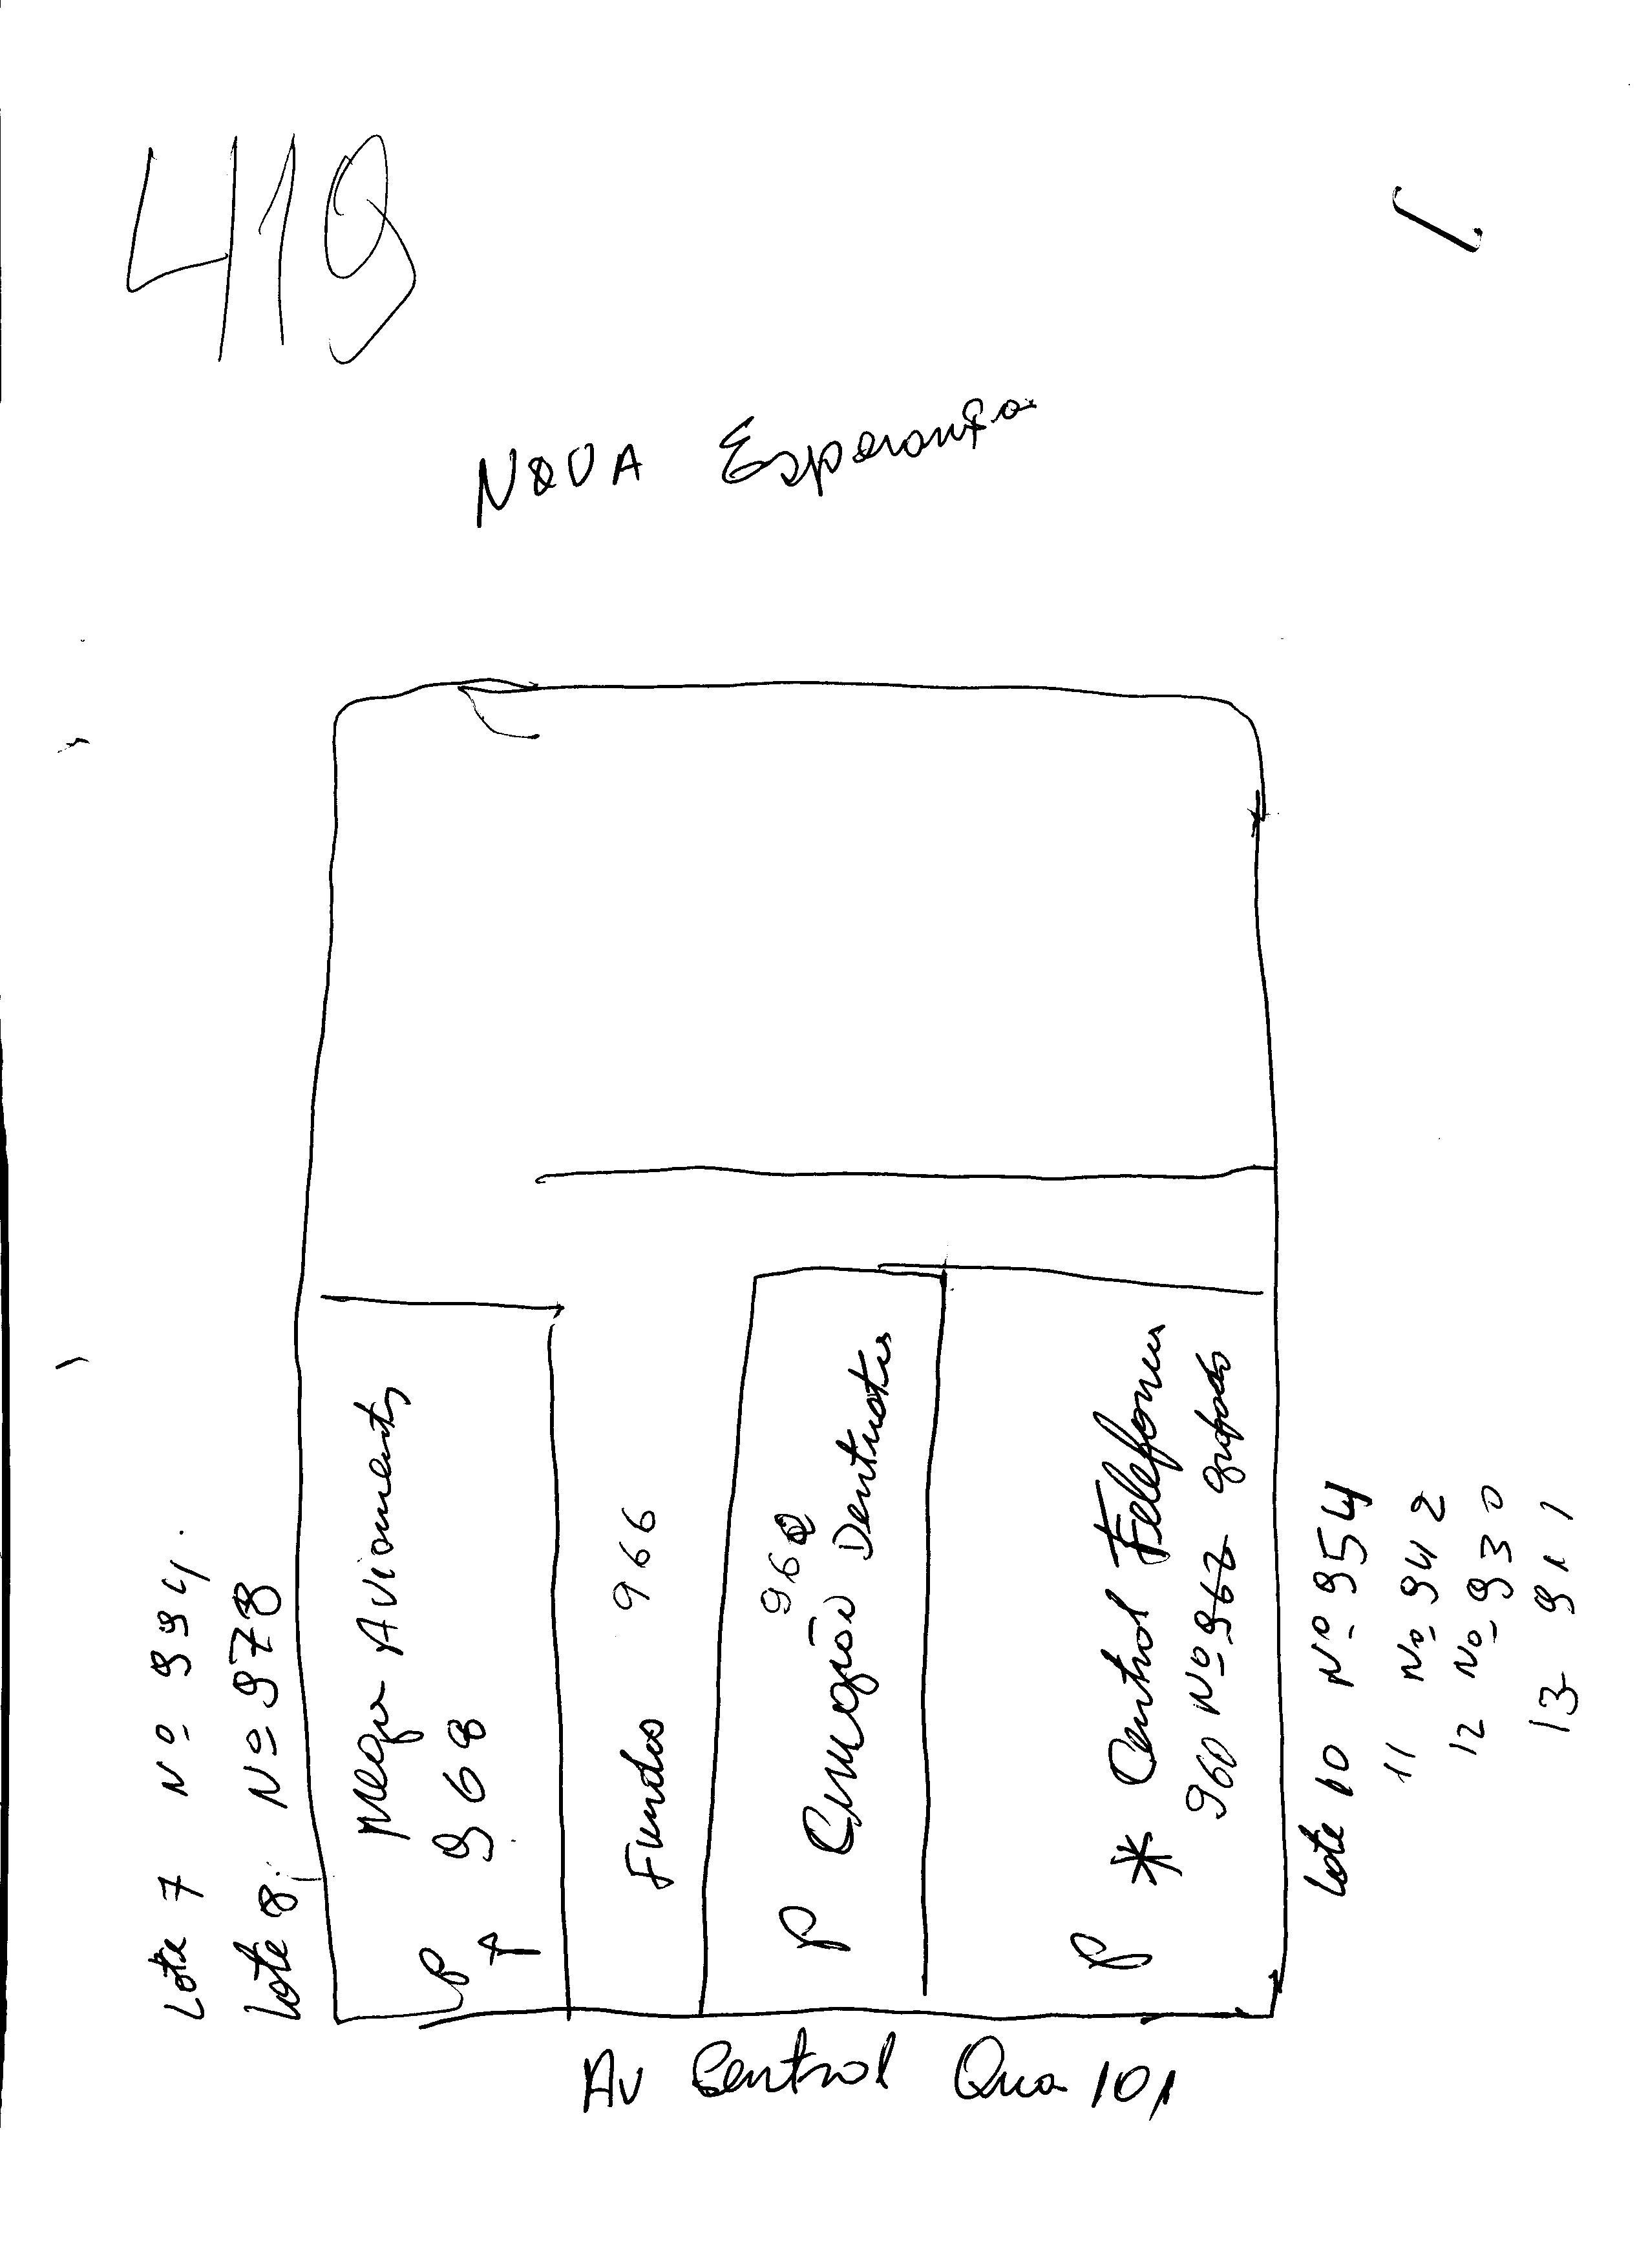 419
NOVA Esperança
Lote 7 Nº 994.
Lote 8. Nº 978
Mega Aviamentos
968
P
Fundos 966
962
P Cirurgião Dentista
P * Central Telefones
960 Nº 962
Lote 10 Nº 954
11 Nº 942
12 Nº 930
13 911
AV Central Qua 101